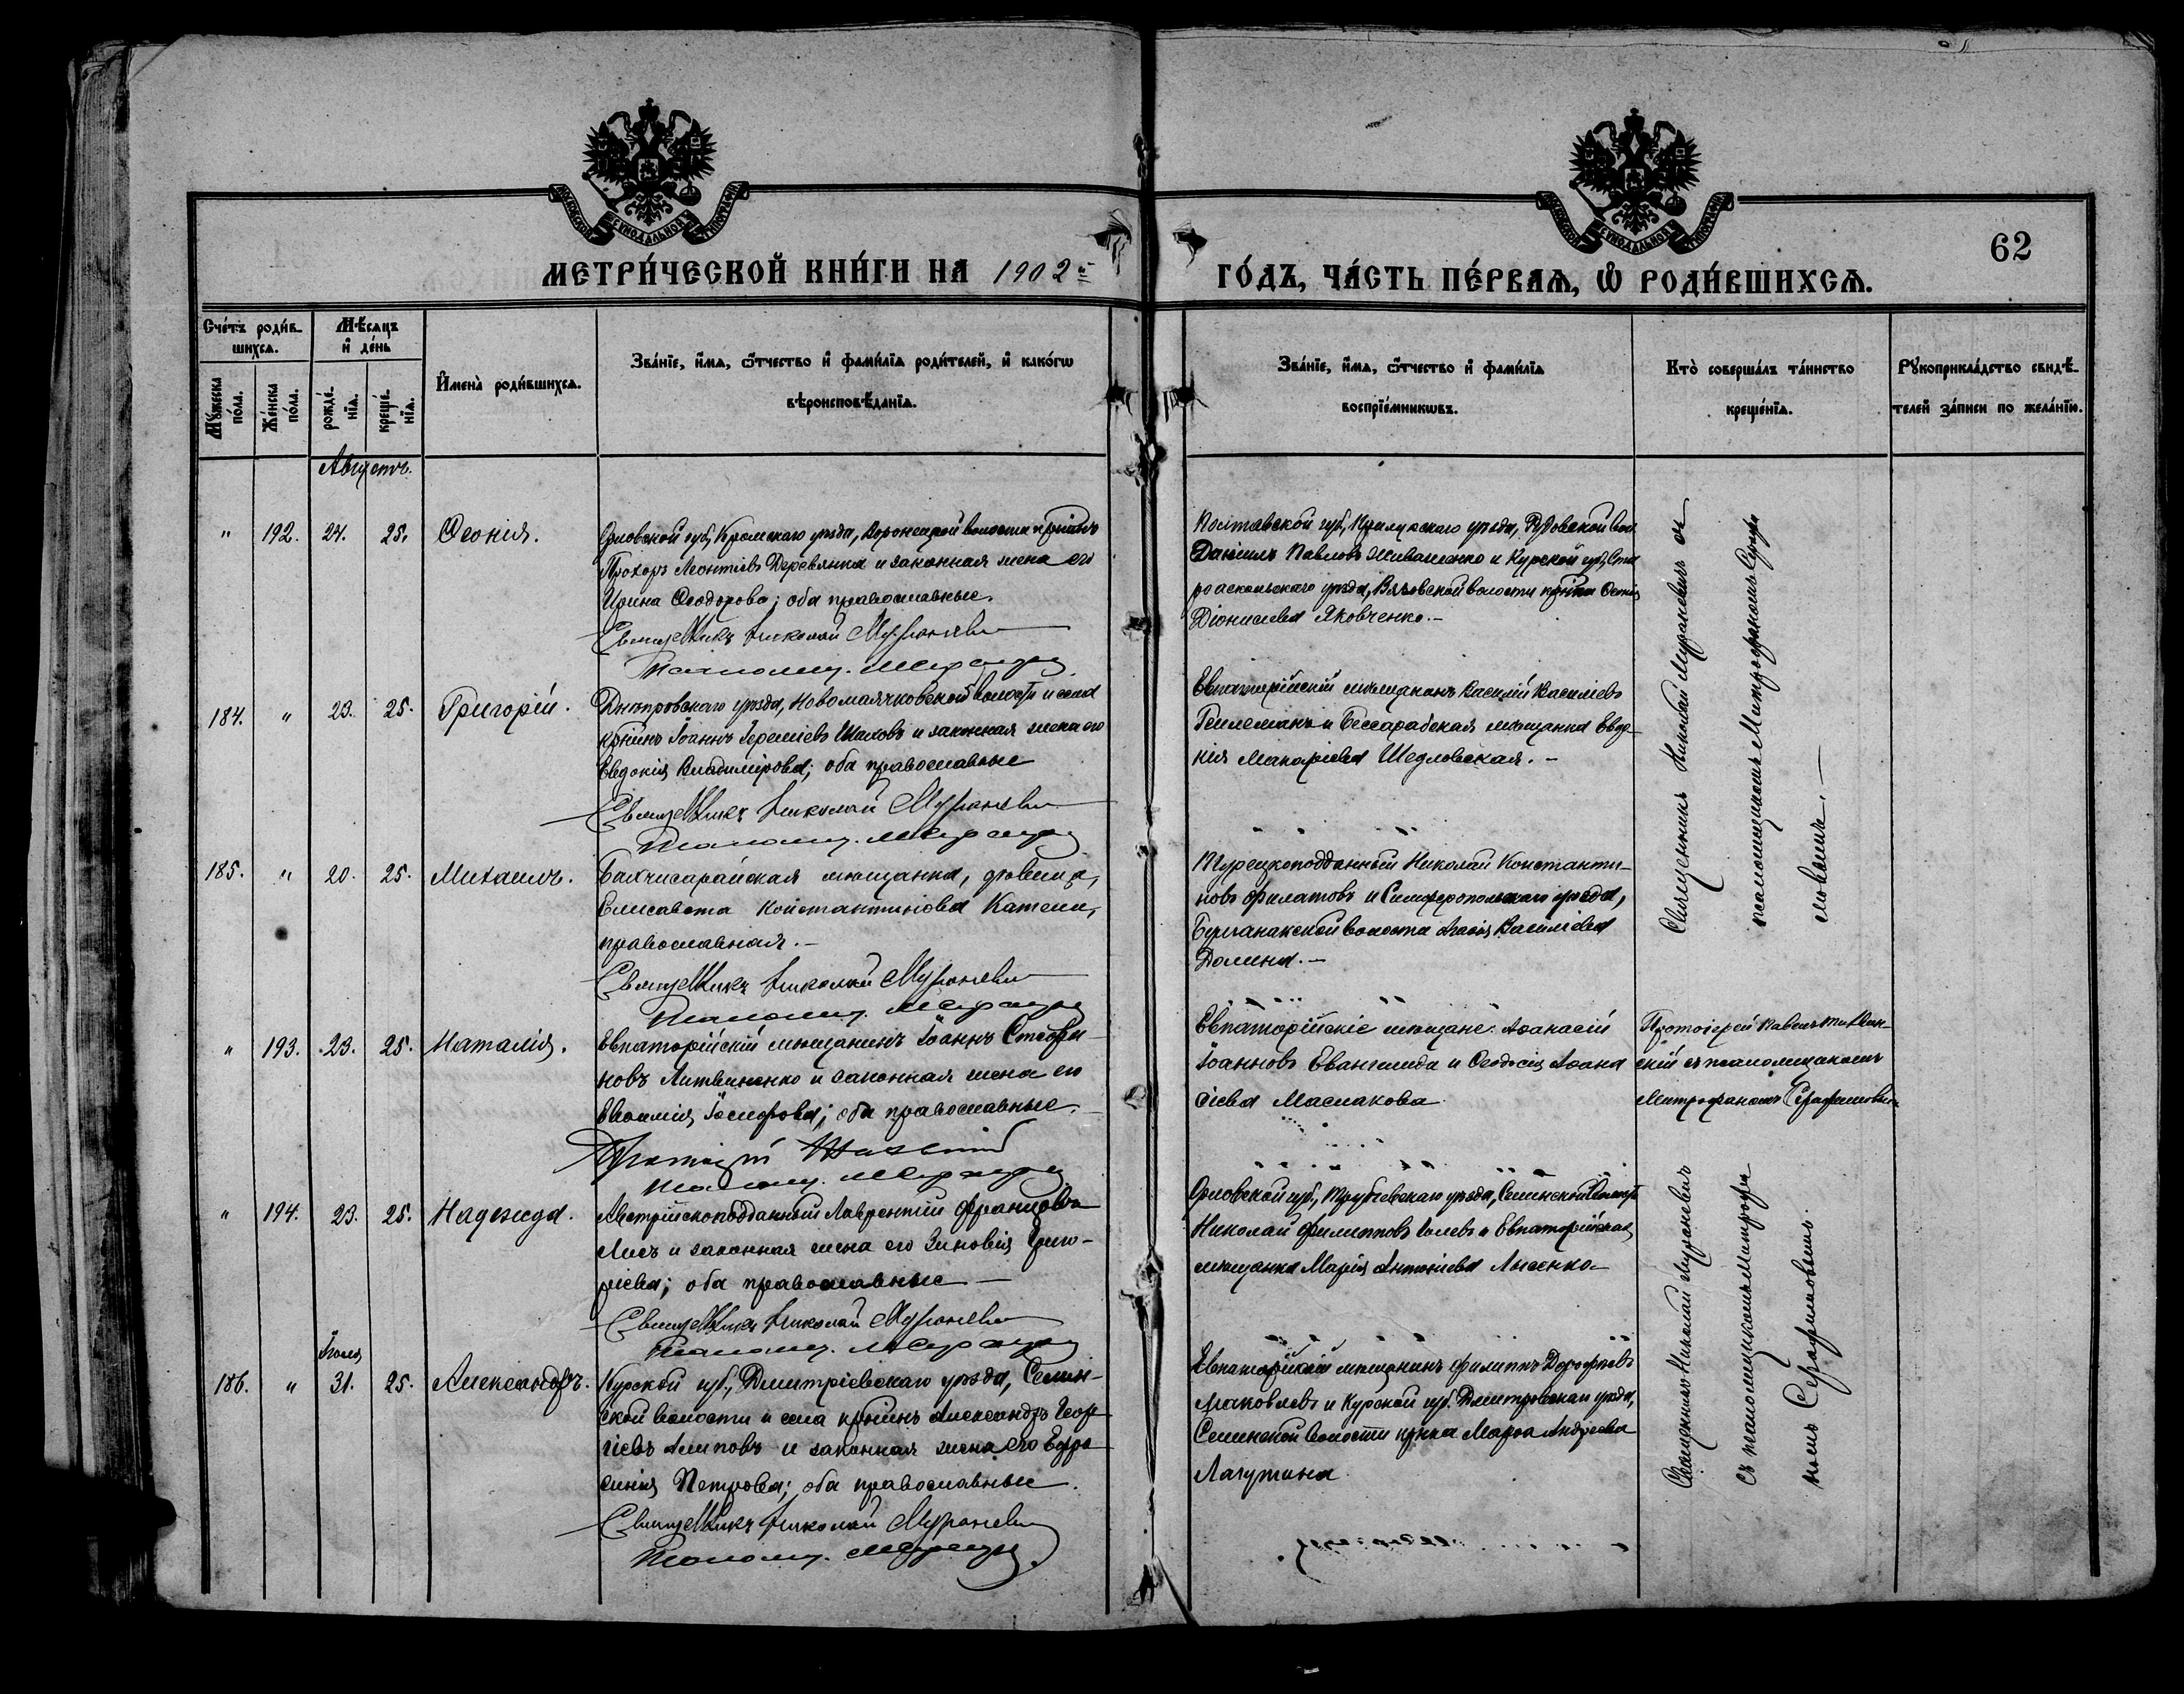 МЕТРИ́ЧЕСКОЙ КНИ́ГИ НА 1902й
ГО́ДЪ, ЧА́СТЬ ПЕ́РВАѦ, Ѡ РОДИ́ВШИХСѦ.
62
Сче́тъ роди́в-
шихсѧ.
Мѣ́сѧцъ
и҆ де́нь
Мꙋ́жеска по́ла.
Же́нска по́ла.
рожде́-
нїѧ.
креще́-
нїѧ.
И҆мена̀ роди́вшихсѧ.
Зва́нїе, и҆́мѧ, ѻ҆́тчество и҆ фами́лїѧ роди́телей, и҆ како́гѡ
вѣроисповѣ́данїѧ.
Зва́нїе, и҆́мѧ, ѻ҆́тчество и҆ фами́лїѧ
воспрїе́мникѡвъ.
Кто̀ соверша́лъ та́инство
креще́нїѧ.
Рꙋкоприкла́дство свидѣ́-
телей за́писи по жела́нїю.
Августъ.
" 192. 24. 25. Ѳеонія.
Орловской губ., Кромскаго уѣзда, волости крнинъ
Прохоръ Леонтіевъ Деревянка и законная жена его
Ирина Ѳеодорова; оба православные.
Священникъ Николай Мураневичъ
Псаломщ.
Полтавской губ., Прилукскаго уѣзда, вол.
Даніилъ Павловъ Живашенко и Курской губ., Ста
рооскольскаго уѣзда, волости крнка
Діонисіева Яковченко. -
Священникъ Николай Мураневичъ съ
псаломщикомъ Митрофаномъ Серафи
мовымъ. -
184. " 23. 25. Григорій.
Днѣпровскаго уѣзда, Новомаячковской волости и села
крнинъ Іоаннъ Іереміевъ Шаховъ и законная жена его
Евдокія Владимірова; оба православные
Священникъ Николай Мураневичъ
Псаломщ.
Евпаторійскій мѣщанинъ Василій Василіевъ
и Бессарабская мѣщанка Евдо-
кія Макаріева Шедловская. -
185. " 20. 25. Михаилъ.
Бахчисарайская мѣщанка, дѣвица,
Елисавета Константинова Катели,
православная. -
Священникъ Николай Мураневичъ
Псаломщ.
Турецкоподданный Николай Константи-
новъ Филатовъ и Симферопольскаго уѣзда,
волости Василіева
Долина. -
" 193. 23. 25. Наталія.
Евпаторійскій мѣщанинъ Іоаннъ Стефа-
новъ Литвиненко и законная жена его
Евѳимія Іосифова; оба православные. -
Протоіерей
Псаломщ.
Евпаторійскіе мѣщане: Аѳанасій
Іоанновъ Евангелиди и Ѳеодосія Аѳана
сіева Маслакова.
Протоіерей Павелъ
скій съ псаломщикомъ
Митрофаномъ Серафимовымъ
" 194. 23. 25. Надежда.
Австрійскоподданный Лаврентій Францовъ
Лисъ и законная жена его Зиновія Григо-
ріева; оба православные -
Священникъ Николай Мураневичъ
Псаломщ.
Орловской губ., Трубчевскаго уѣзда, волости
Николай Филипповъ и Евпаторійская
мѣщанка Марія Антоніева Лысенко
Священникъ Николай Мураневичъ
съ псаломщикомъ Митрофа
номъ Серафимовымъ.
Іюля
186. " 31. 25. Александръ.
Курской губ., Дмитріевскаго уѣзда, Селин-
ской волости и села крнинъ Александръ Геор
гіевъ Алиповъ и законная жена его Евфро
синія Петрова; оба православные.
Священникъ Николай Мураневичъ
Псаломщ.
Евпаторійскій мѣщанинъ Филиппъ Дороѳеевъ
Маковлевъ и Курской губ. уѣзда,
Селинской волости крнка Марѳа Андреева
Лагутина